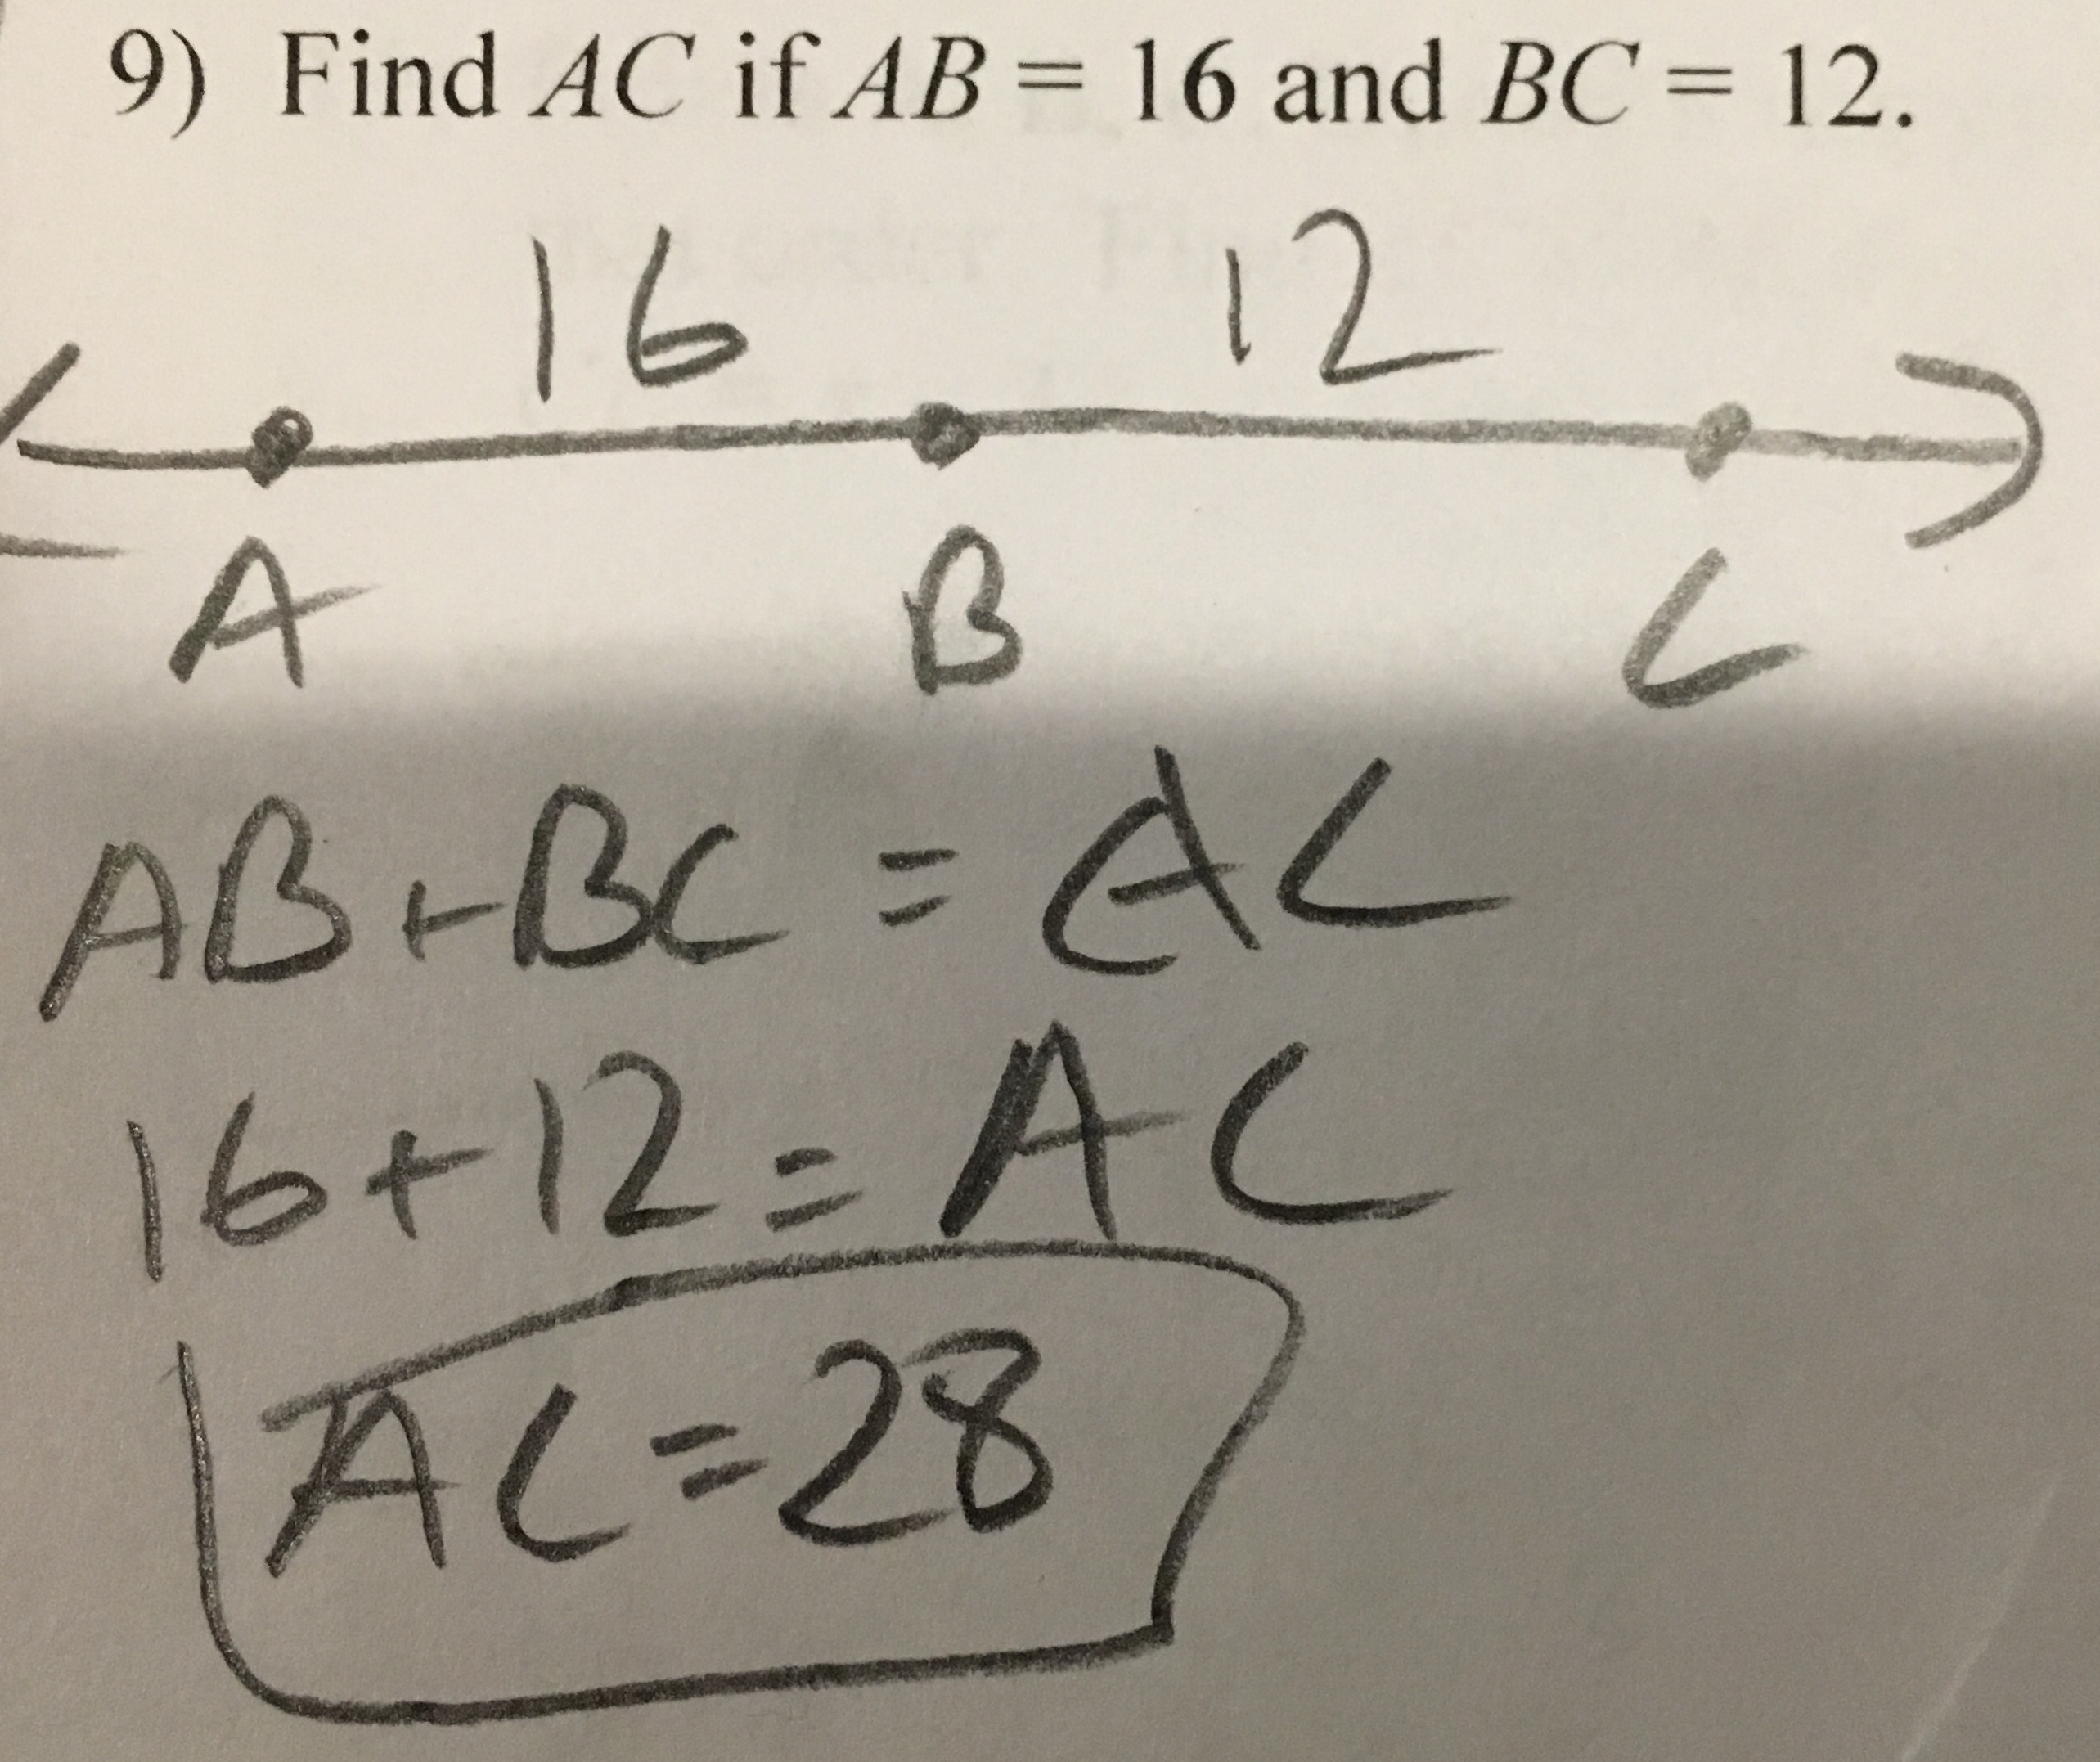 9) Find AC if AB = 16 and BC = 12.
16 12
A B C
AB+BC = AC
16+12 = AC
AC=28